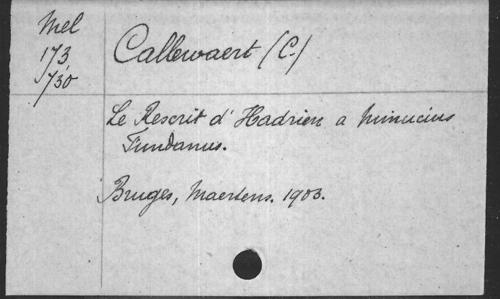 Mel
173,
730
Callewaert (C.)
Le Rescrit d'Hadrien a Minucius
Fundanus.
Bruges, Maertens. 1903.